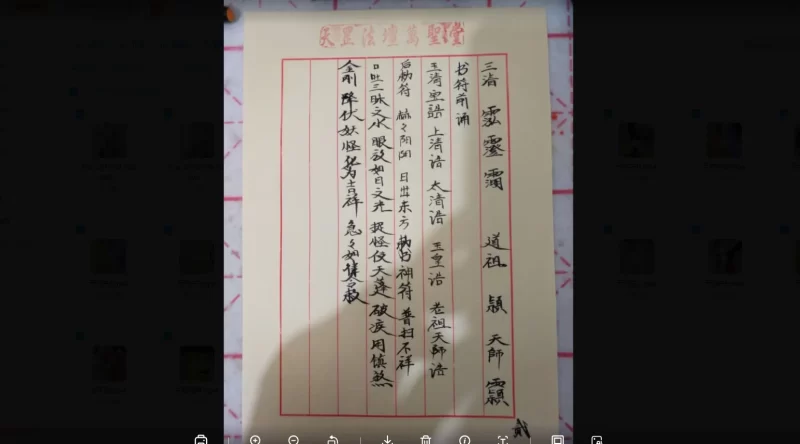 天罡法壇萬聖堂
三清 道祖 天師
书符前诵
玉清宝誥 上清诰 太清诰 玉皇诰 老祖天師诰
后敕符 赫々阴阳 日出东方 敕书神符 普扫不祥
口吐三脉之水 眼放如日之光 捉怪使天蓬 破疾用镇煞
金刚 降伏妖怪 化为吉祥 急々如律令敕
贰